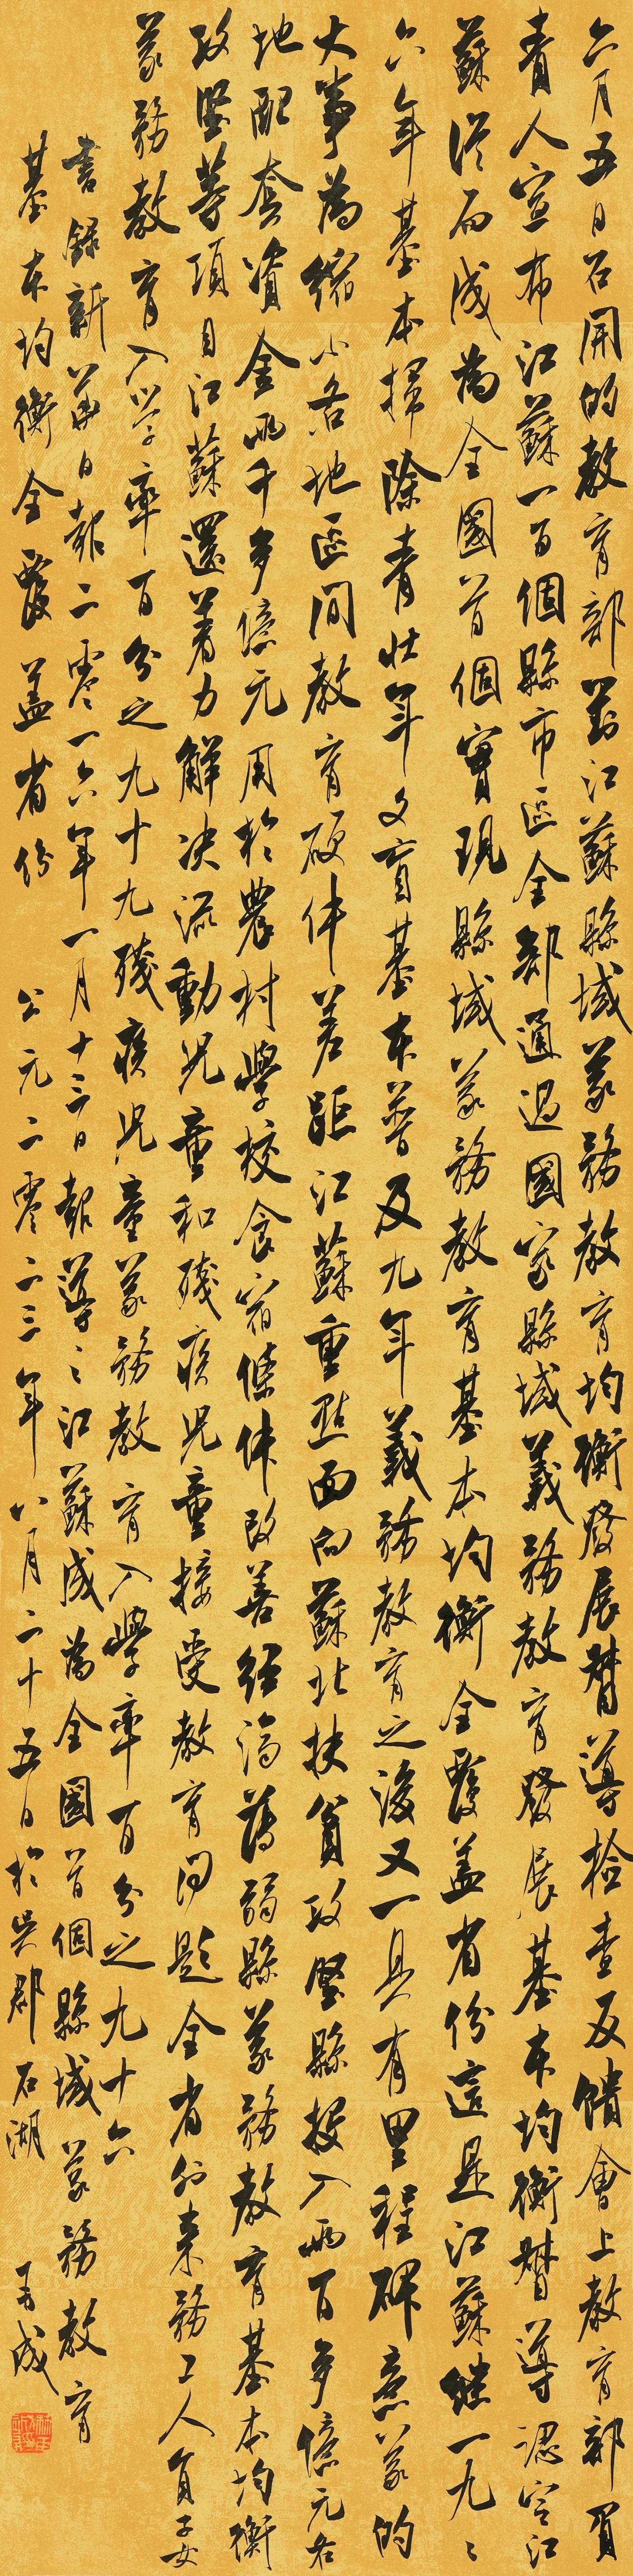 六月五日召開的教育部對江蘇縣域義務教育均衡發展督導檢查反饋會上教育部負
責人宣布江蘇一百個縣市區全部通過國家縣域義務教育發展基本均衡督導認定江
蘇從而成為全國首個實現縣域義務教育基本均衡全覆蓋省份這是江蘇繼一九九
六年基本掃除青壯年文盲基本普及九年義務教育之後又一具有里程碑意義的
大事為縮小各地區間教育硬件差距江蘇重點面向蘇北扶貧攻堅縣投入兩百多億元各
地配套資金兩千多億元用於農村學校食宿條件改善經濟薄弱縣義務教育基本均衡
攻堅等項目江蘇還著力解決流動兒童和殘疾兒童接受教育問題全省外來務工人員子女
義務教育入學率百分之九十九殘疾兒童義務教育入學率百分之九十六
書錄新華日報二零一六年一月十三日報導之江蘇成為全國首個縣域義務教育
基本均衡全覆蓋省份 公元二零二三年八月二十五日於吳郡石湖 成